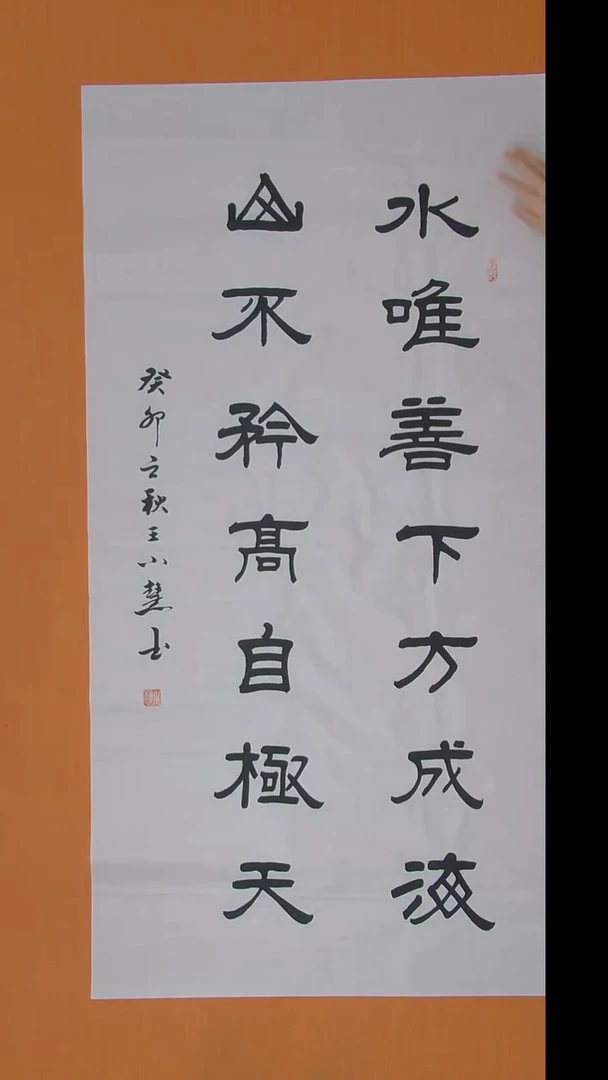 水唯善下方成海
山不矜高自極天
癸卯立秋王小慧书